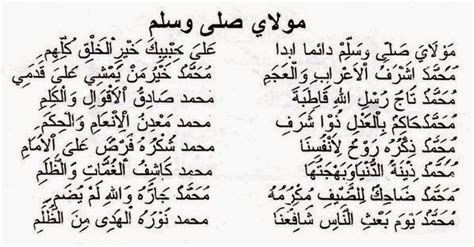 مولاي صلى وسلم
مَوْلَايَ صَلِّي وَسَلِّمْ دائما ابدا عَلىَ حَبِيْبِكَ خَيْرِ الْخَلْقِ كُلِّهِم
مُحَمَّدٌ اَشْرَفُ الْاَعْرَابِ وَالْعَجَمِ مُحَمَّدٌ خَيْرُ مَنْ يَمْشِي عَلىَ قَدَمِي
مُحَمَّدٌ تَاجُ رُسْلِ اللهِ قَاطِبَةً محمد صَادِقُ الْاَقْوَالِ وَالْكَلِمِ
مُحَمَّدٌ حَاكِمٌ بِالْعَدْلِ ذُوْا شَرَفٍ محمد مَعْدِنُ اْلاِنْعَامِ وَالْحِكَمِ
مُحَمَّدٌ ذِكْرُهُ رُوْحٌ لِاَنْفُسِنَا محمد شُكْرُهُ فَرْضٌ عَلىَ الْاُمَامِ
مُحَمَّدٌ زِيْنَةُ الدُّنْيَا وَبَهْجَتُهَا محمد كَاشِفُ الْغُمَّاتِ وَالظُّلَمِ
مُحَمَّدٌ ضَاحِكٌ لِلضَّيْفِ مُكْرِمُهُ مُحَمَّدٌ جَارُهُ وَاللهِ لَمْ يُضَمِ
مُحَمَّدٌ يَوْمَ بَعْثِ النَّاسِ شَافِعُنَا محمد نُوْرُهُ الْهَدِى مِنَ الظُّلَمِ